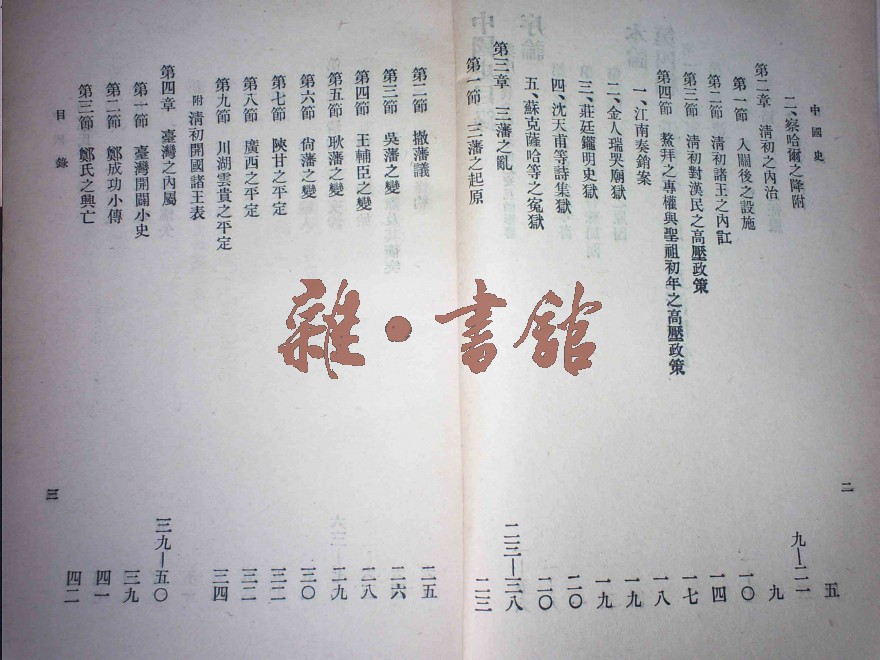 中國史 二
二、察哈爾之降附 五
第二章 清初之內治 九—二一
第一節 入關後之設施 九
第二節 清初諸王之內訌 一〇
第三節 清初對漢民之高壓政策 一四
第四節 鰲拜之專權與聖祖初年之高壓政策 一七
一、江南奏銷案 一八
二、金人瑞哭廟獄 一九
三、莊廷鑨明史獄 一九
四、沈天甫等詩集獄 二〇
五、蘇克薩哈等之冤獄 二〇
第三章 三藩之亂 二三—三八
第一節 三藩之起原 二三
第二節 撤藩議 二五
第三節 吳藩之變 二六
第四節 王輔臣之變 二八
第五節 耿藩之變 二九
第六節 尙藩之變 三〇
第七節 陝甘之平定 三二
第八節 廣西之平定 三二
第九節 川湖雲貴之平定 三四
附 清初開國諸王表
第四章 臺灣之內屬 三九—五〇
第一節 臺灣開闢小史 三九
第二節 鄭成功小傳 四一
第三節 鄭氏之興亡 四二
目錄 三
雜·書館